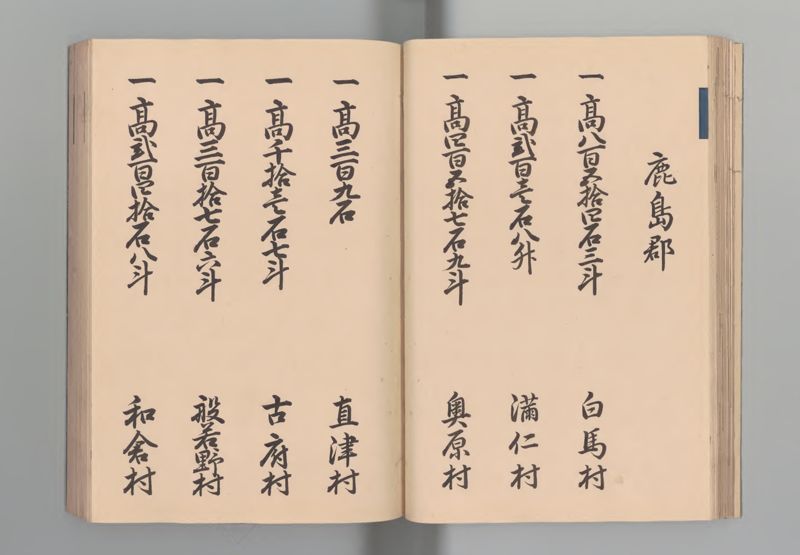 鹿島郡
一高八百五拾四石三斗 白馬村
一高弐百壱石八升 満仁村
一高四百五拾七石九斗 奥原村
一高三百九石 直津村
一高千拾壱石七斗 古府村
一高三百拾七石六斗 般若野村
一高弐百四拾石八斗 和倉村